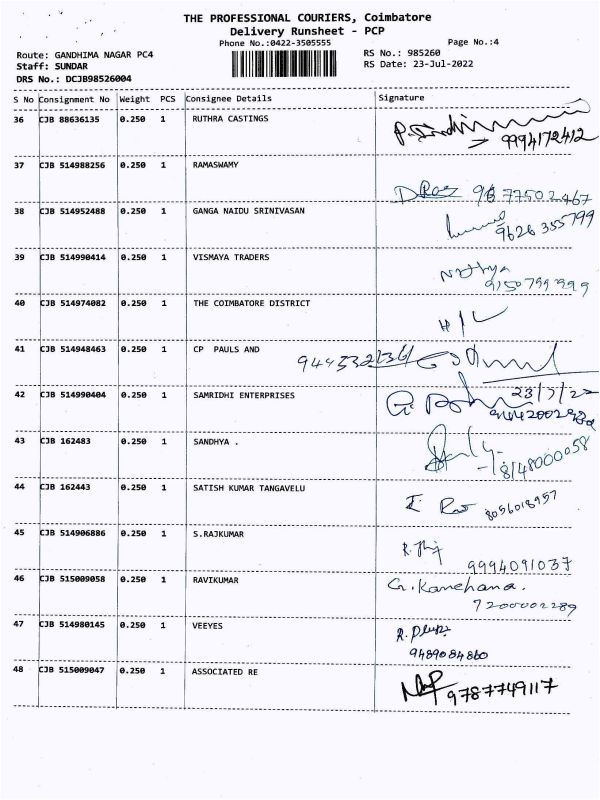 THE PROFESSIONAL COURIERS, Coimbatore
Delivery Runsheet - PCP
Phone No.:0422-3505555
Page No.:4
Route: GANDHIMA NAGAR PC4
RS No.: 985260
Staff: SUNDAR
RS Date: 23-Jul-2022
DRS No.: DCJB98526004
S No Consignment No Weight PCS Consignee Details Signature
36 CJB 88636135 0.250 1 RUTHRA CASTINGS
9994172412
37 CJB 514988256 0.250 1 RAMASWAMY
9677502467
38 CJB 514952488 0.250 1 GANGA NAIDU SRINIVASAN
9626355799
39 CJB 514990414 0.250 1 VISMAYA TRADERS
Nithya
9150799999
40 CJB 514974082 0.250 1 THE COIMBATORE DISTRICT
41 CJB 514948463 0.250 1 CP PAULS AND
23/7/22
42 CJB 514990404 0.250 1 SAMRIDHI ENTERPRISES
43 CJB 162483 0.250 1 SANDHYA .
8148000058
44 CJB 162443 0.250 1 SATISH KUMAR TANGAVELU
8056018957
45 CJB 514906886 0.250 1 S.RAJKUMAR
9994091037
46 CJB 515009058 0.250 1 RAVIKUMAR
G. Kanchana.
7200002289
47 CJB 514980145 0.250 1 VEEYES
9489084860
48 CJB 515009047 0.250 1 ASSOCIATED RE
9787749117